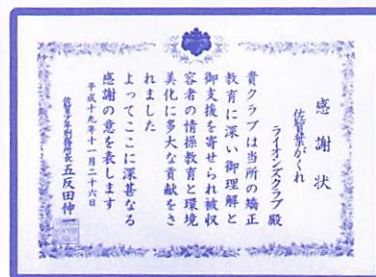 感謝状
佐賀葉がくれ
ライオンズクラブ殿
貴クラブは当所の矯正
教育に深い御理解と
御支援を寄せられ被収
容者の情操教育と環境
美化に多大な貢献をさ
れました
よってここに深甚なる
感謝の意を表します
平成十九年十一月二十六日
佐賀少年刑務所長 五反田伸一